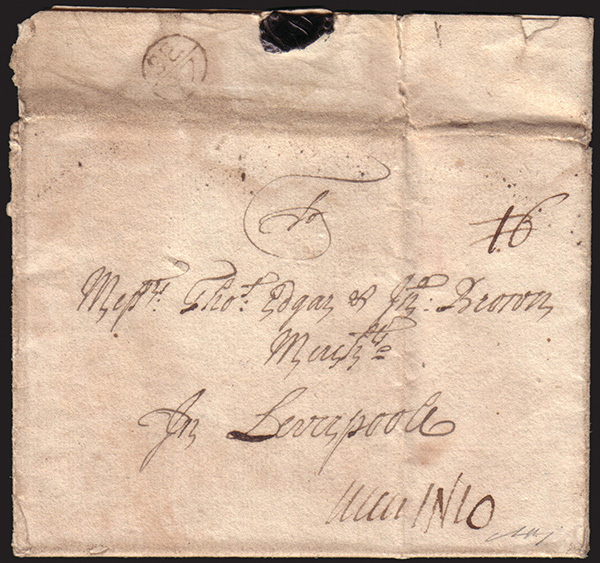 DE
To
16
Messrs. Thos. Edgar & Jno: Brown
Merchts
In Leverpoole